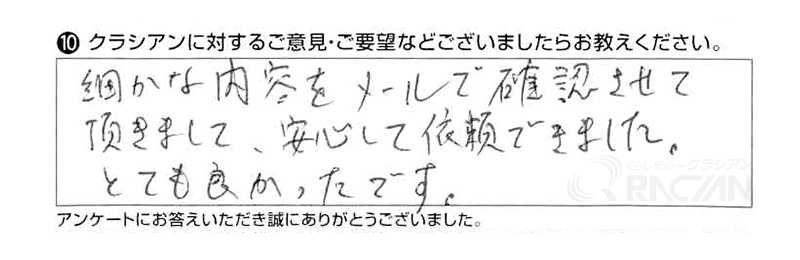 ❿ クラシアンに対するご意見・ご要望などございましたらお教えください。
細かな内容をメールで確認させて
頂きまして、安心して依頼できました。
とても良かったです。
くらし安心クラシアン
QRACIAN
アンケートにお答えいただき誠にありがとうございました。